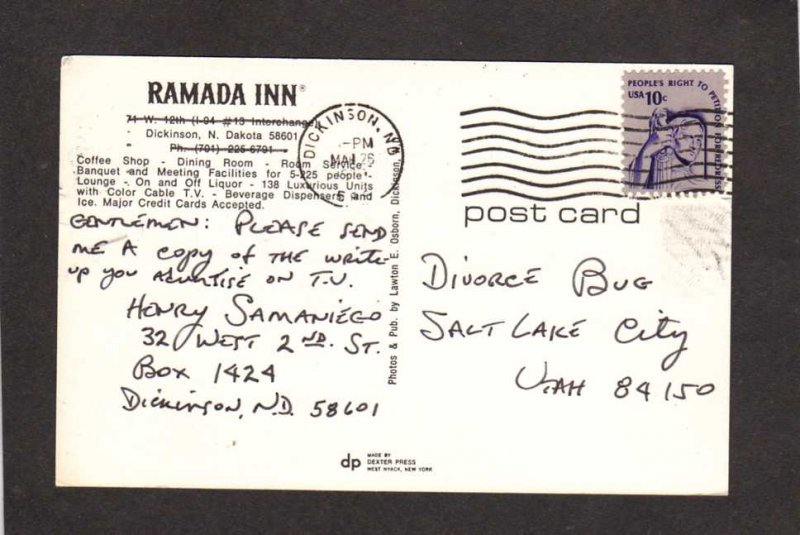 RAMADA INN®
71 W. 12th (I-94 #13 Interchange)
Dickinson, N. Dakota 58601
Ph. (701) 225-6791
Coffee Shop - Dining Room - Room Service -
Banquet and Meeting Facilities for 5-225 people
Lounge - On and Off Liquor - 138 Luxurious Units
with Color Cable T.V. - Beverage Dispensers and
Ice. Major Credit Cards Accepted.
GENTLEMEN: PLEASE SEND
ME A COPY OF THE WRITE-
UP YOU ADVERTISE ON T.V.
HENRY SAMANIEGO
32 WEST 2ND. ST.
BOX 1424
DICKINSON, N.D. 58601
DICKINSON, ND
PM
25
Photos & Pub. by Lawton E. Osborn, Dickinson,
PEOPLE'S RIGHT TO PETITION FOR REDRESS
USA 10c
post card
DIVORCE BUG
SALT LAKE CITY
UTAH 84150
dp
MADE BY
DEXTER PRESS
WEST NYACK, NEW YORK